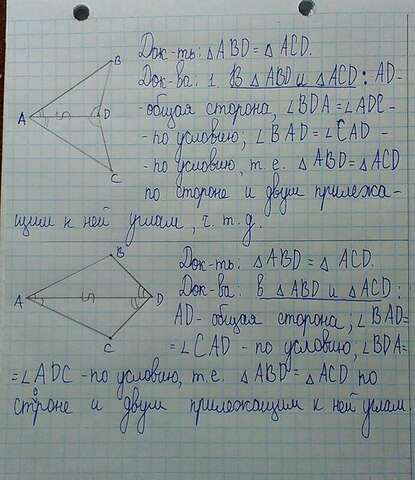 B
A
D
C
Док-ть: △ABD = △ACD.
Док-ва: 1. В △ABD и △ACD: AD-
-общая сторона, ∠BDA=∠ADC-
-по условию; ∠BAD=∠CAD -
-по условию, т.е. △ABD=△ACD
по стороне и двум прилежа-
щим к ней углам, ч.т.д.
B
A
D
C
Док-ть: △ABD = △ACD.
Док-ва: в △ABD и △ACD:
AD- общая сторона, ∠BAD=
=∠CAD - по условию, ∠BDA=
=∠ADC -по условию, т.е. △ABD=△ACD по
стороне и двум прилежащим к ней углам.